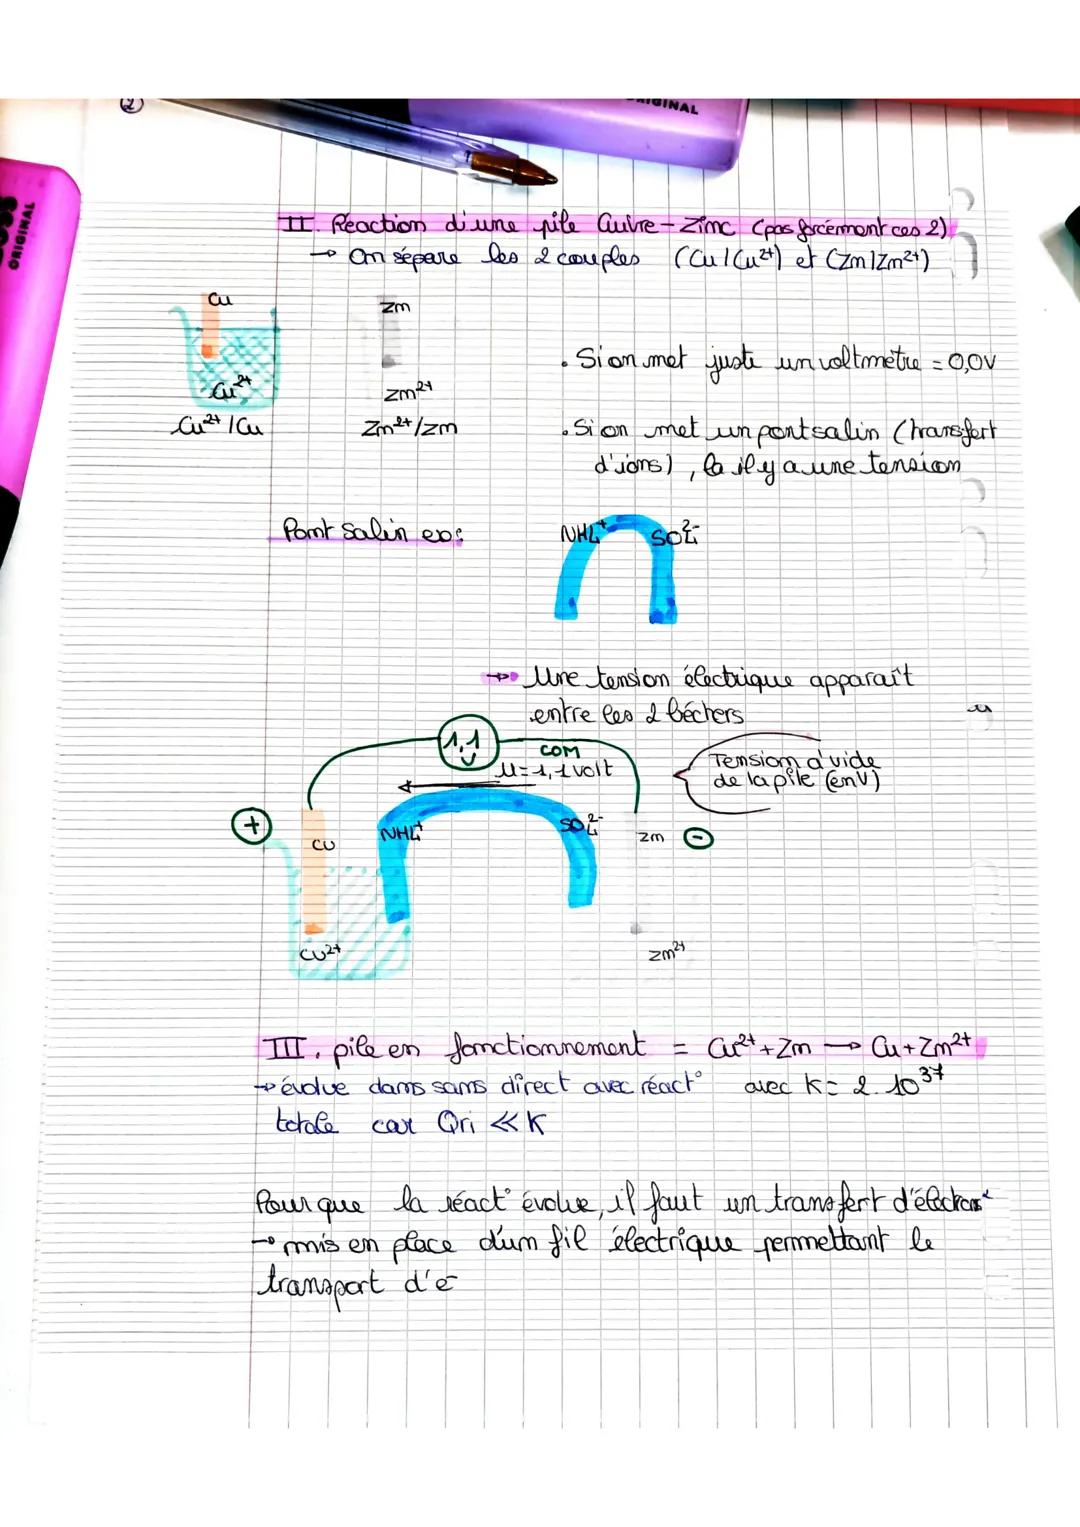 ②
ORIGINAL
ORIGINAL
II. Réaction d'une pile Cuivre-Zinc (pas forcément ces 2)
→ On sépare les 2 couples (Cu/Cu²⁺) et (Zn/Zn²⁺)
Cu
Zn
• Si on met juste un voltmètre = 0,0V
Cu²⁺
Zn²⁺
Cu²⁺/Cu
Zn²⁺/Zn
• Si on met un pont salin (transfert
d'ions), là il y a une tension
Pont salin ex:
NH₄⁺
SO₄²⁻
→ Une tension électrique apparaît
entre les 2 béchers
1,1
V
COM
U=1,1 volt
Tension à vide
de la pile (en V)
+
Cu
NH₄⁺
SO₄²⁻
Zn
-
Cu²⁺
Zn²⁺
III. pile en fonctionnement = Cu²⁺+Zn → Cu+Zn²⁺
→ évolue dans sans direct avec réact° avec K= 2.10³⁷
totale car Qri ≪ K
Pour que la réact° évolue, il faut un transfert d'électrons
→ mis en place d'un fil électrique permettant le
transport d'e⁻